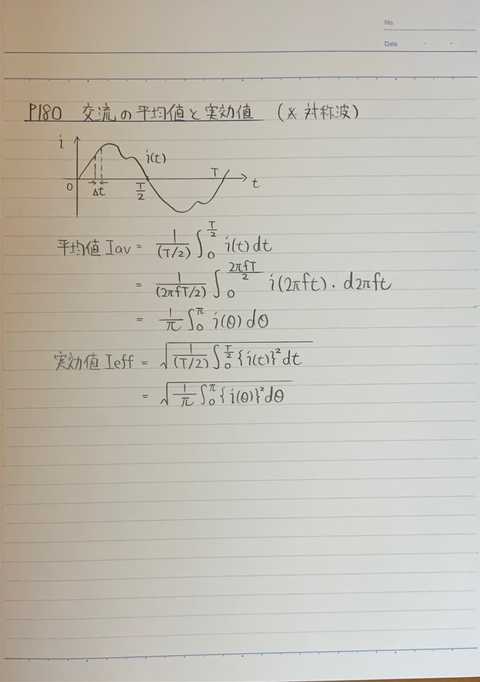 No.
Date
P180 交流の平均値と実効値 (※対称波)
i
i(t)
0 Δt T/2 T t
平均値 Iav = 1/(T/2) ∫₀^(T/2) i(t)dt
= 1/(2πfT/2) ∫₀^(2πfT/2) i(2πft)・d2πft
= 1/π ∫₀^π i(θ)dθ
実効値 Ieff = √(1/(T/2) ∫₀^(T/2) {i(t)}²dt)
= √(1/π ∫₀^π {i(θ)}²dθ)